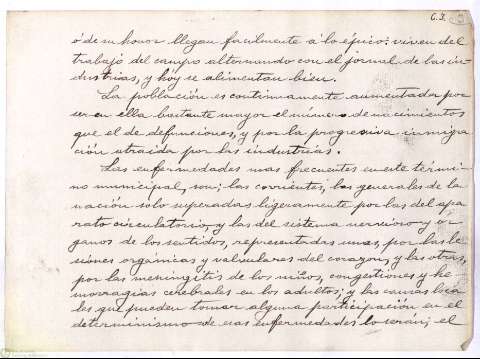 C.J.
ó de su honor llegan facilmente á lo épico: viven del
trabajo del campo alternando con el jornal de las in-
dustrias, y hoy se alimentan bien.
La población es continuamente aumentada por
ser en ella bastante mayor el número de nacimientos
que el de defunciones, y por la progresiva inmigra
ción atraida por las industrias.
Las enfermedades mas frecuentes en este térmi-
no municipal, son; las corrientes, las generales de la
nación solo superadas ligeramente por las del apa
rato circulatorio, y las del sistema nervioso y ór
ganos de los sentidos, representadas unas, por las le
siones orgánicas y valvulares del corazon, y las otras,
por las meningitis de los niños, congestiones y he
morragias cerebrales en los adultos; y las causas loca
les que pueden tomar alguna participación en el
determinismo de esas enfermedades lo serán; el